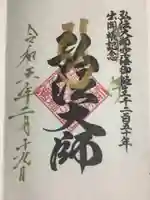 弘法大師御誕生千二百五十年
出開帳記念
弘法大師
令和六年二月十九日